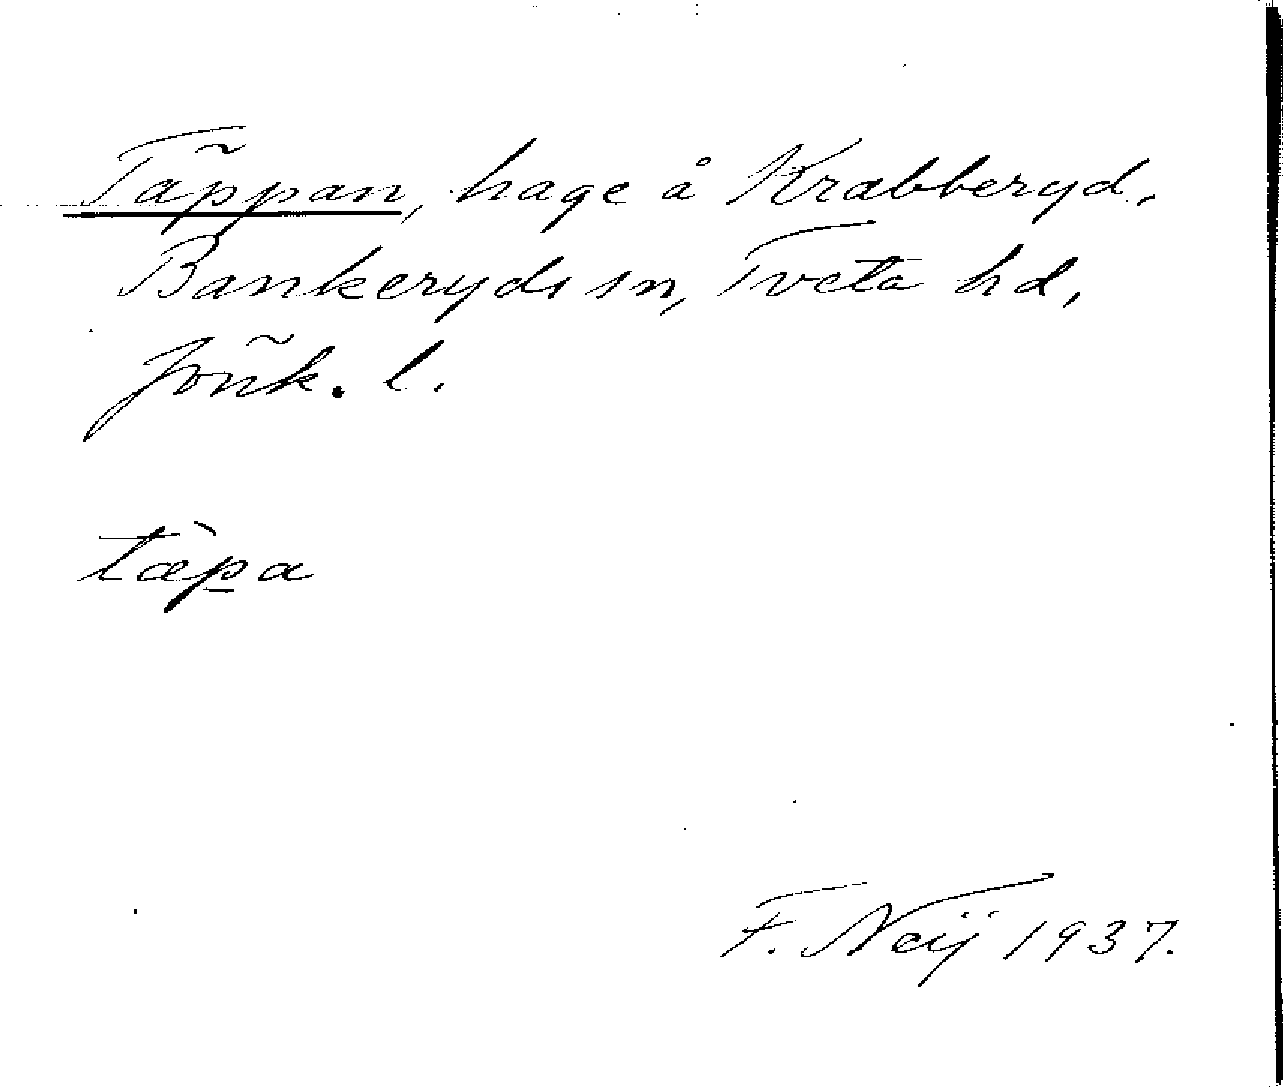 Täppan, hage å Krabberyd,
Bankeryds sn, Tveta hd,
Jönk. l.
tæ̀pa
F. Neij 1937.